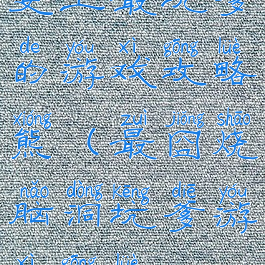 de yóu xì gōng lüè
的游戏攻略
xióng zuì jiǒng shāo
熊（最囧烧
nǎo dòng kēng diē yóu
脑洞坑爹游